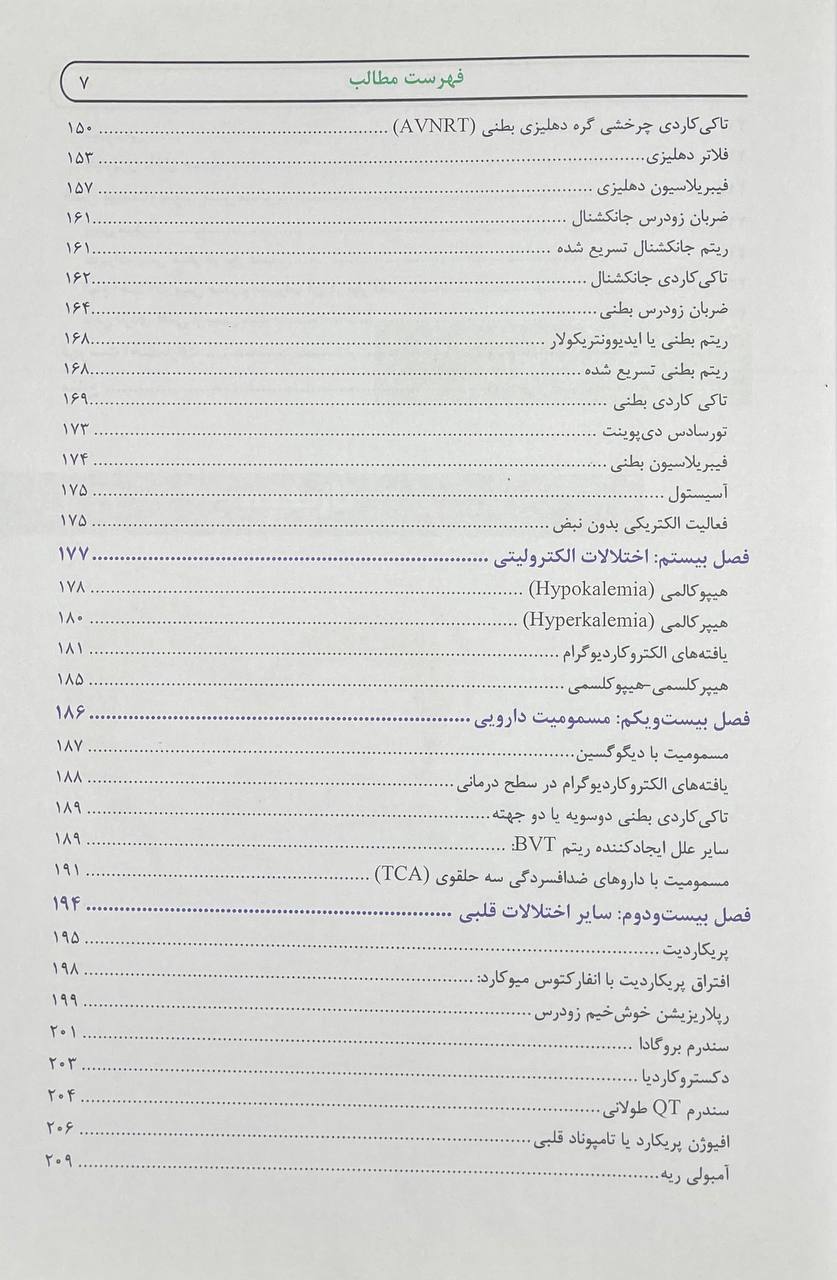 فهرست مطالب ۷
تاکی‌کاردی چرخشی گره دهلیزی بطنی (AVNRT) ۱۵۰
فلاتر دهلیزی ۱۵۳
فیبریلاسیون دهلیزی ۱۵۷
ضربان زودرس جانکشنال ۱۶۱
ریتم جانکشنال تسریع شده ۱۶۱
تاکی‌کاردی جانکشنال ۱۶۲
ضربان زودرس بطنی ۱۶۴
ریتم بطنی یا ایدیوونتریکولار ۱۶۸
ریتم بطنی تسریع شده ۱۶۸
تاکی کاردی بطنی ۱۶۹
تورسادس دی‌پوینت ۱۷۳
فیبریلاسیون بطنی ۱۷۴
آسیستول ۱۷۵
فعالیت الکتریکی بدون نبض ۱۷۵
فصل بیستم: اختلالات الکترولیتی ۱۷۷
هیپوکالمی (Hypokalemia) ۱۷۸
هیپرکالمی (Hyperkalemia) ۱۸۰
یافته‌های الکتروکاردیوگرام ۱۸۱
هیپرکلسمی-هیپوکلسمی ۱۸۵
فصل بیست‌ویکم: مسمومیت دارویی ۱۸۶
مسمومیت با دیگوگسین ۱۸۷
یافته‌های الکتروکاردیوگرام در سطح درمانی ۱۸۸
تاکی‌کاردی بطنی دوسویه یا دو جهته ۱۸۹
سایر علل ایجادکننده ریتم BVT: ۱۸۹
مسمومیت با داروهای ضدافسردگی سه حلقوی (TCA) ۱۹۱
فصل بیست‌ودوم: سایر اختلالات قلبی ۱۹۴
پریکاردیت ۱۹۵
افتراق پریکاردیت با انفارکتوس میوکارد: ۱۹۸
رپلاریزیشن خوش‌خیم زودرس ۱۹۹
سندرم بروگادا ۲۰۱
دکستروکاردیا ۲۰۳
سندرم QT طولانی ۲۰۴
افیوژن پریکارد یا تامپوناد قلبی ۲۰۶
آمبولی ریه ۲۰۹